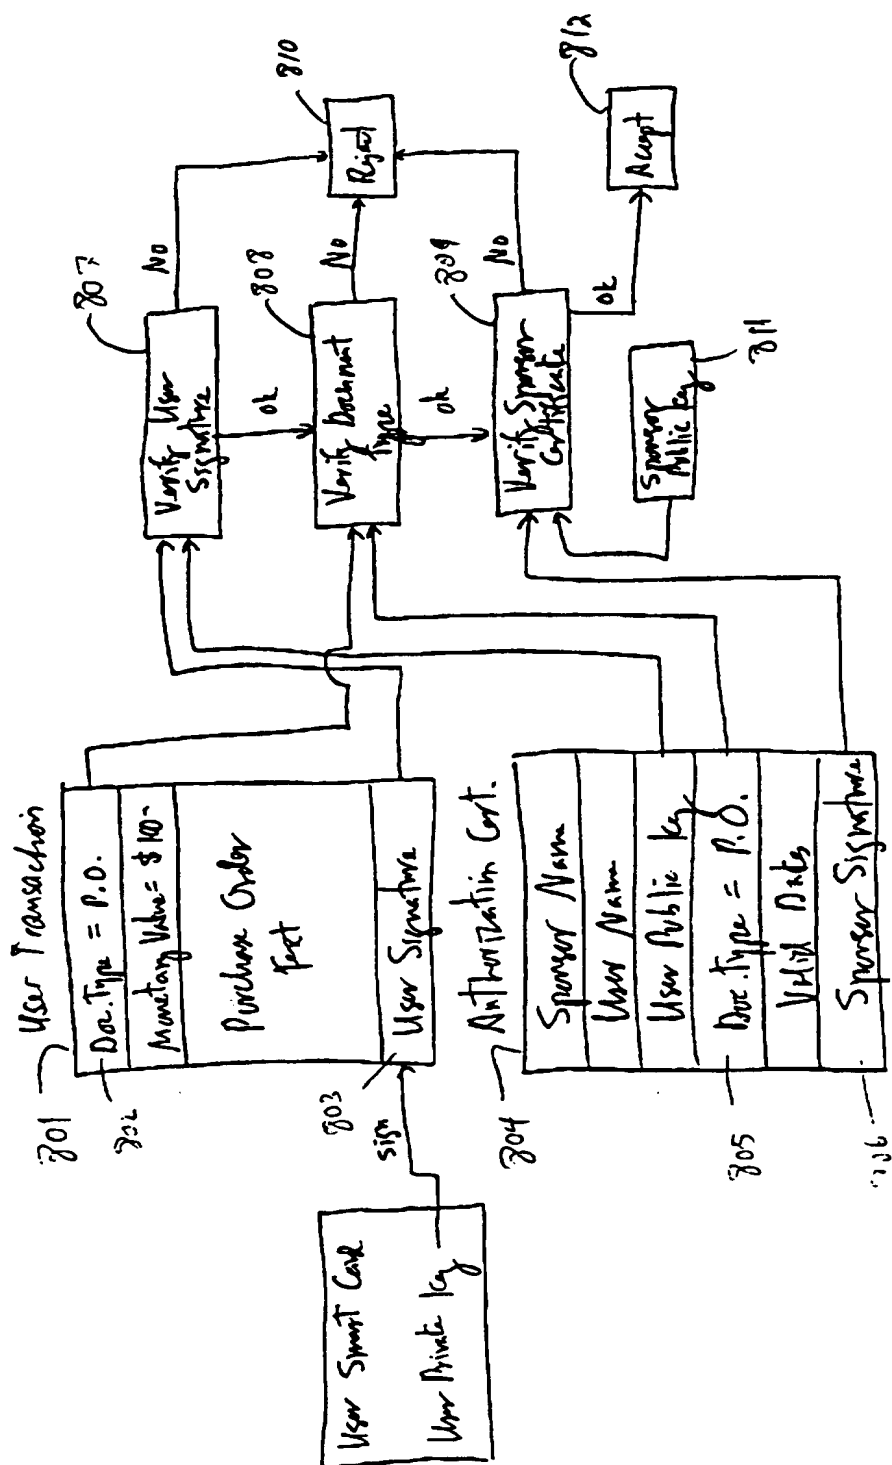 User Smart Card
User Private Key
sign
801
User Transaction
802
Doc. Type = P.O.
Monetary Value = $100-
Purchase Order
Text
803
User Signature
804
Authorization Cert.
Sponsor Name
User Name
User Public Key
805
Doc. Type = P.O.
Valid Dates
Sponsor Signature
807
Verify User
Signature
No
OK
808
Verify Document
Type
No
OK
809
Verify Sponsor
Certificate
No
OK
Sponsor
Public Key
811
810
Reject
812
Accept